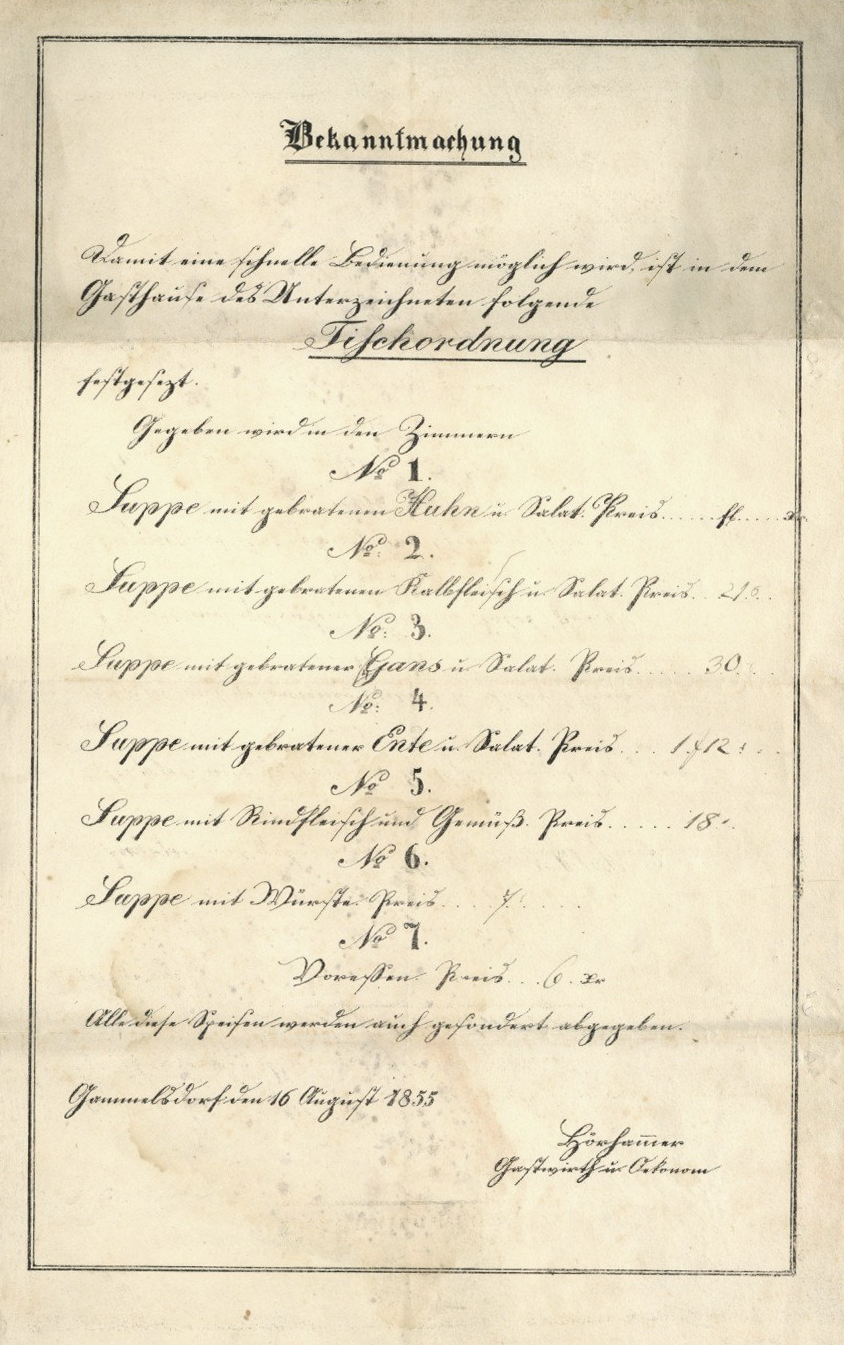 Bekanntmachung
Damit eine schnelle Bedienung möglich wird, ist in dem
Gasthause des Unterzeichneten folgende
Tischordnung
festgesezt.
Gegeben wird in den Zimmern
No 1.
Suppe mit gebratenen Huhn u. Salat. Preis..... fl.... xr.
No: 2.
Suppe mit gebratenen Kalbfleisch u. Salat. Preis..
No: 3.
Suppe mit gebratener Gans u. Salat. Preis..... 30.
No: 4.
Suppe mit gebratener Ente u. Salat. Preis... 1 f 12
No 5.
Suppe mit Rindfleisch und Gemüß. Preis..... 18.
No 6.
Suppe mit Würste. Preis.... 7.
No 7.
Voressen. Preis... 6. xr
Alle diese Speisen werden auch gesondert abgegeben.
Gammelsdorf den 16 August 1855
Hörham̄er
Gastwirth u. Oekonom